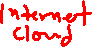 Internet
Cloud